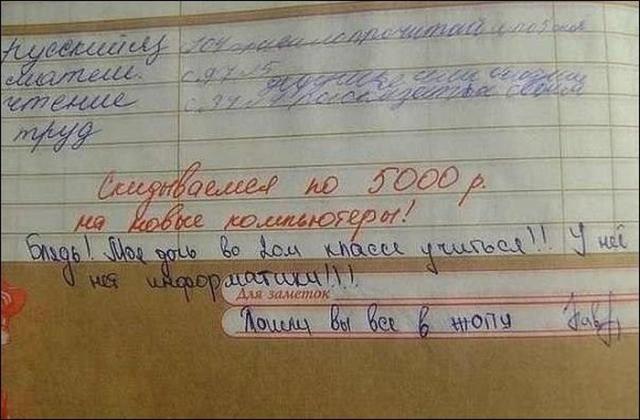 Русский яз
матем. с.97 №5
чтение с.94
труд
Скидываемся по 5000 р.
на новые компьютеры!
Блядь! Моя дочь во 2ом классе учиться!! У неё
нет информатики!!!!
Для заметок
Пошли вы все в жопу